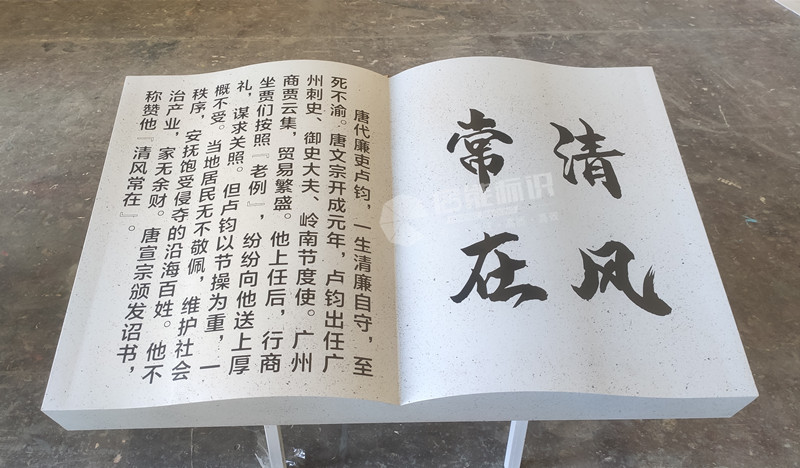 清风
常在
唐代廉吏卢钧，一生清廉自守，至
死不渝。唐文宗开成元年，卢钧出任广
州刺史、御史大夫、岭南节度使。广州
商贾云集，贸易繁盛。他上任后，行商
坐贾们按照『老例』，纷纷向他送上厚
礼，谋求关照。但卢钧以节操为重，一
概不受。当地居民无不敬佩，维护社会
秩序，安抚饱受侵夺的沿海百姓。他不
治产业，家无余财。唐宣宗颁发诏书，
称赞他『清风常在』。
标识